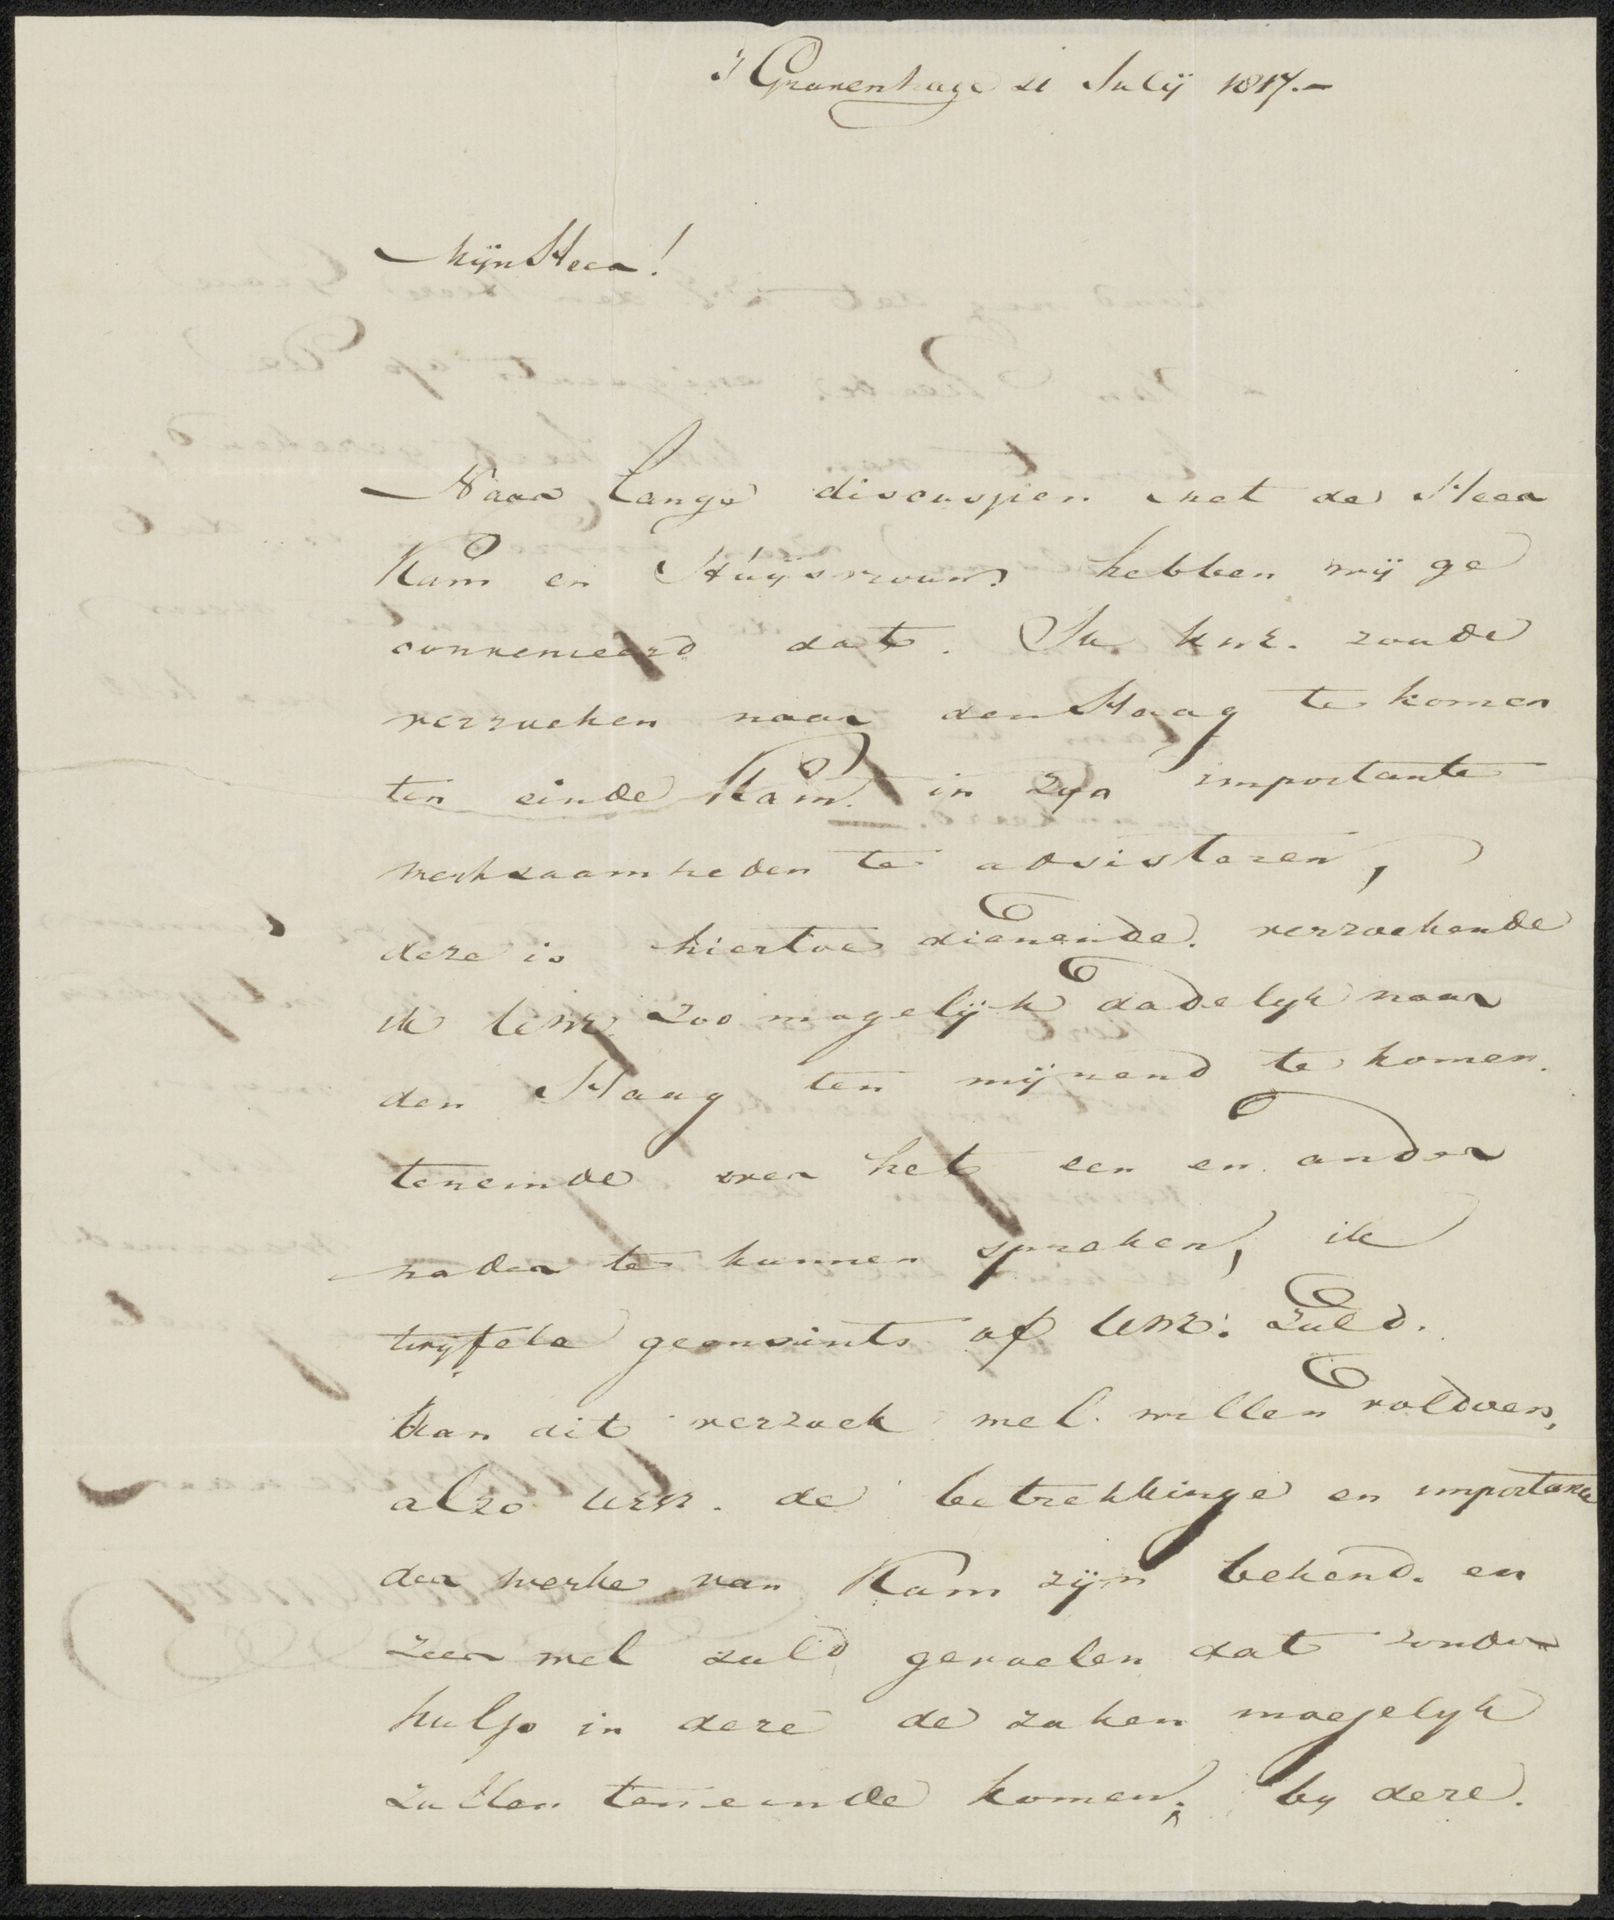 's Gravenhage 21 Julij 1817.-
Mijn Heer!
Naar lange discussien met de Heer
Kam en Huijsvrouw hebben wij ge
convenieerd dat. Ik UWE. zoude
verzoeken naar den Haag te komen
ten einde Kam in zyn importante
werkzaamheden te adsisteren,
deze is hiertoe dienende. verzoekende
ik UWE zoo mogelijk dadelyk naar
den Haag ten mijnend te komen.
teneinde over het een en ander
nader te kunnen spreken, ik
twyfele geensints of UWE: Zuld.
aan dit verzoek wel willen voldoen,
alzo UWE. de betrekkinge en importance
der werke van Kam zijn bekend. en
zeer wel zuld gevoelen dat zonder
hulp in deze de zaken moejelyk
zullen teneinde komen, by deze.